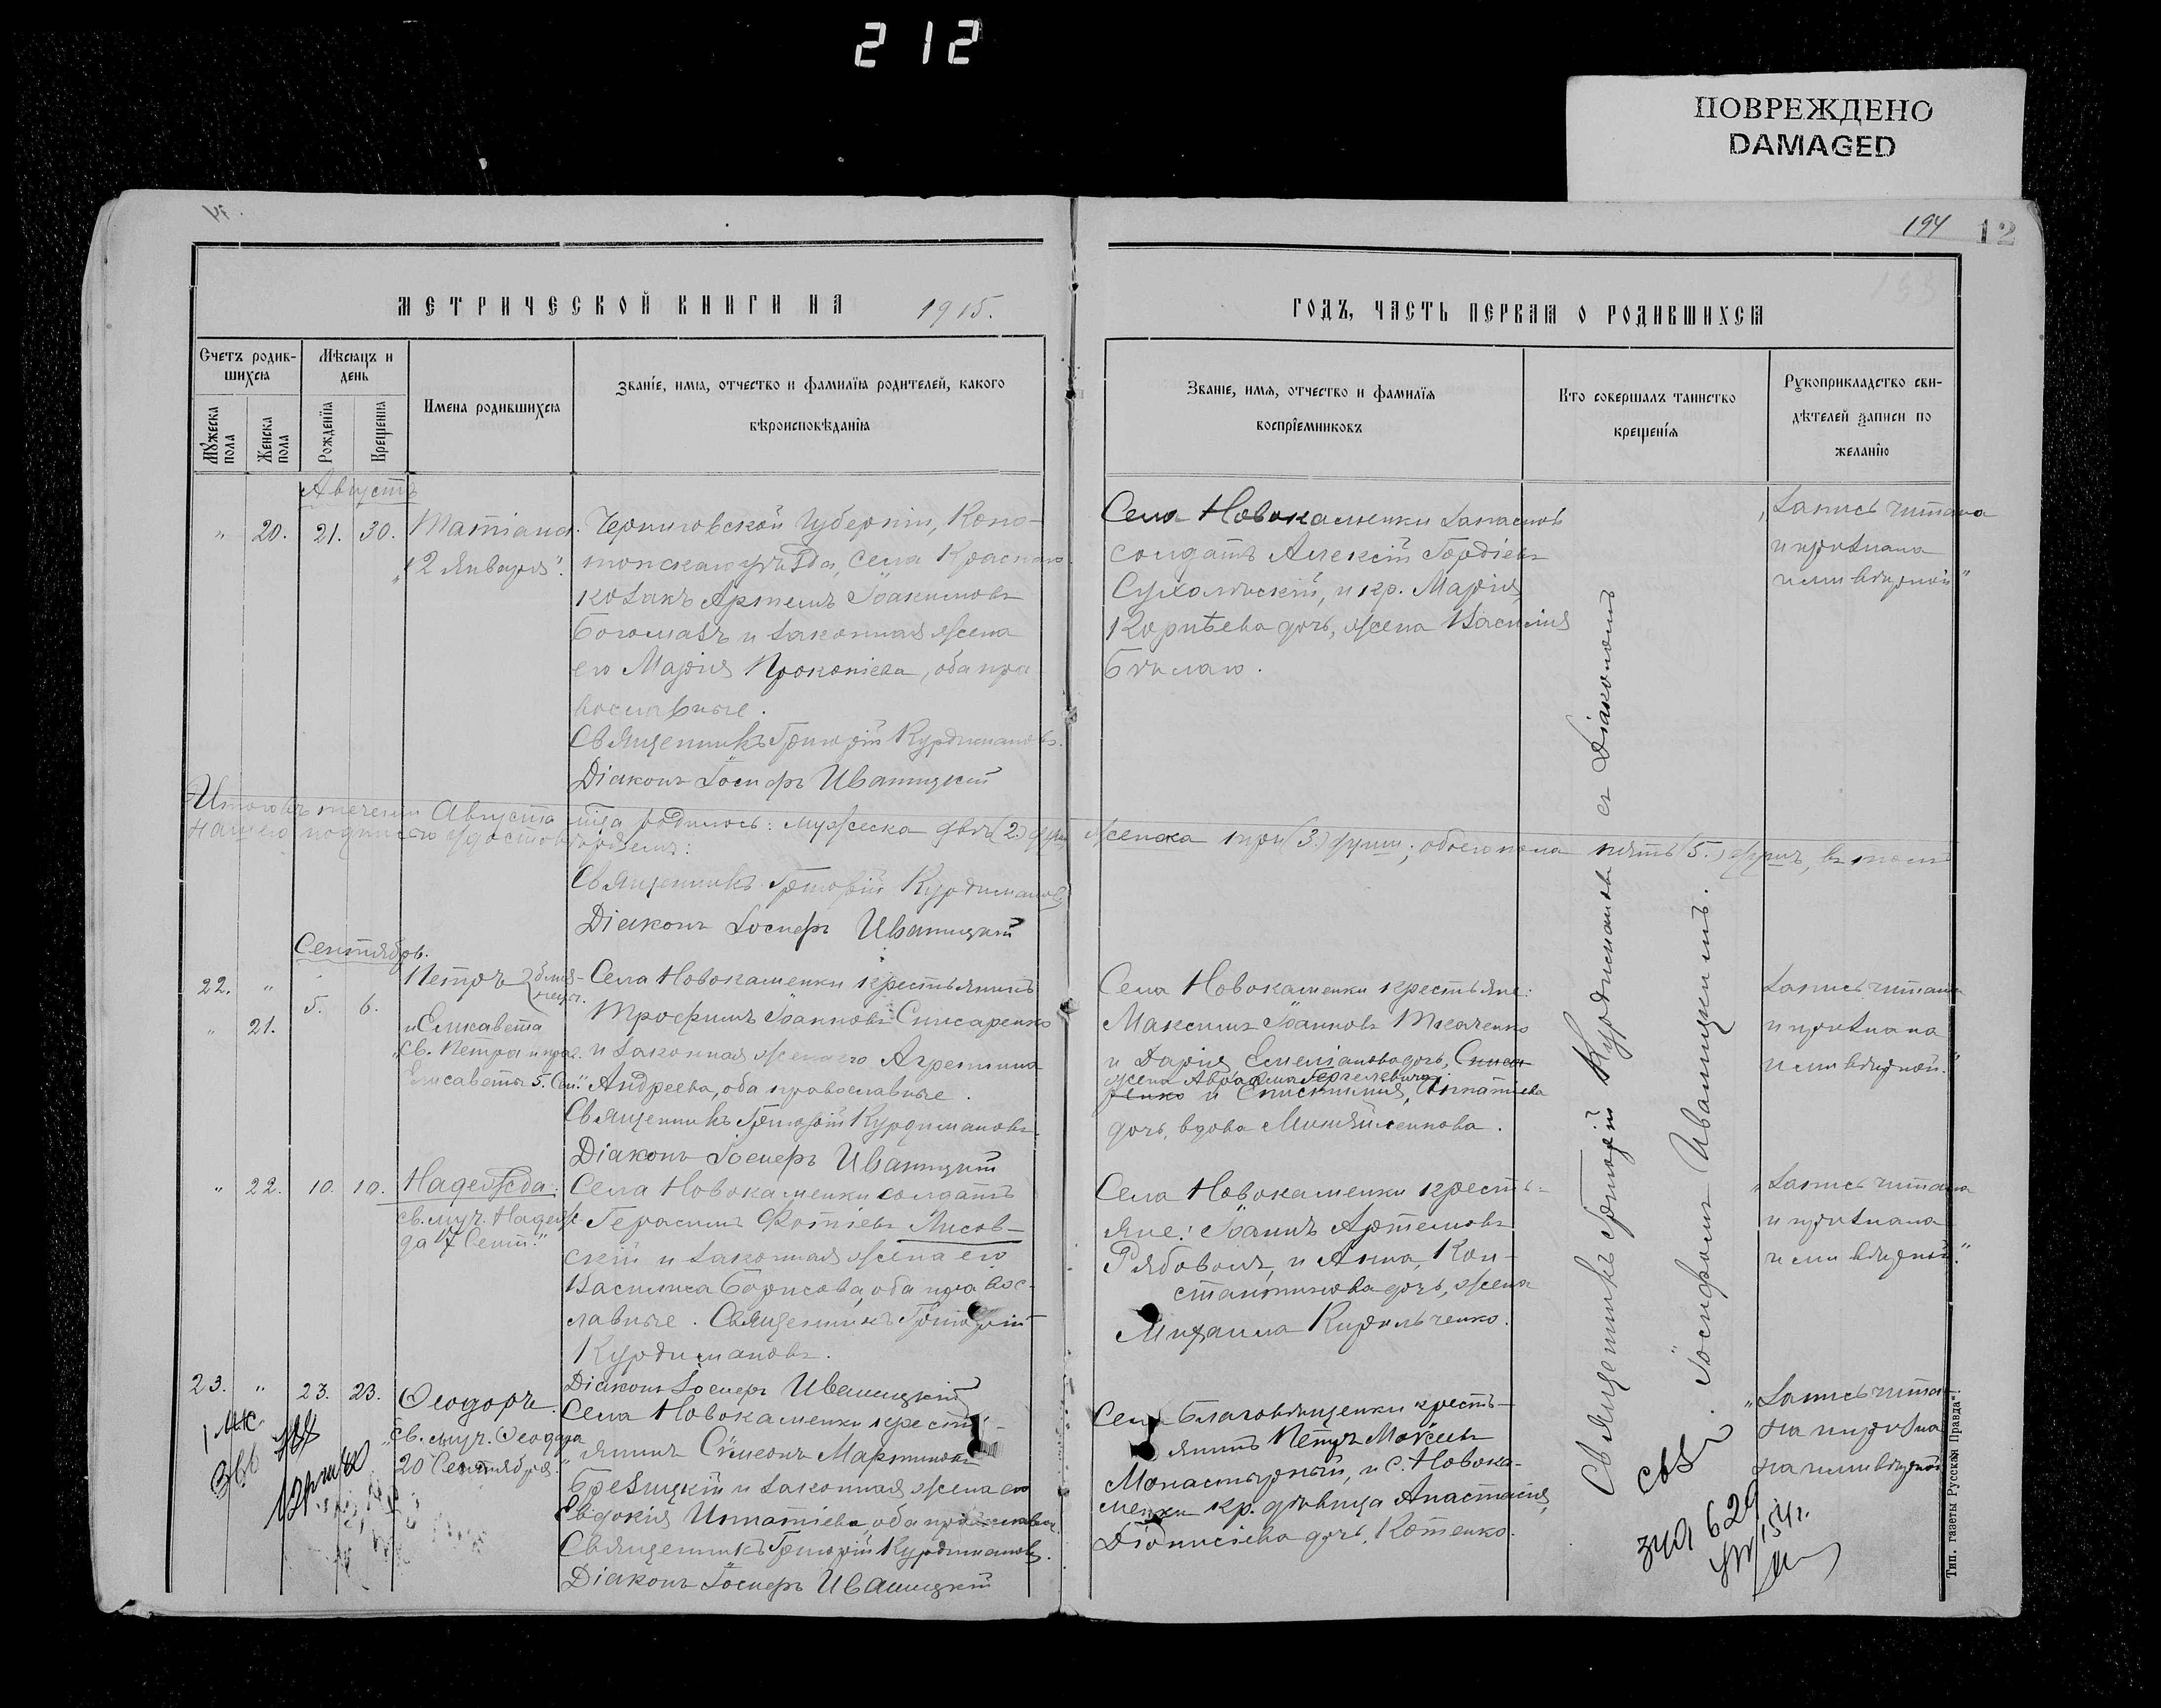 212
ПОВРЕЖДЕНО
DAMAGED
194 12
МЕТРИЧЕСКОЙ КНИГИ НА 1915.
ГОДЪ, ЧАСТЬ ПЕРВАЯ О РОДИВШИХСЯ
Счетъ родив-
шихся
Мужеска пола
Женска пола
Мѣсяцъ и
день
Рожденія
Крещенія
Имена родившихся
Званіе, имя, отчество и фамилія родителей, какого
вѣроисповѣданія
Званіе, имя, отчество и фамилія
воспріемниковъ
Кто совершалъ таинство
крещенія
Рукоприкладство сви-
дѣтелей записи по
желанію
Августъ
" 20. 21. 30.
Татіана.
"12 Января".
Черниговской Губерніи, Коно-
топскаго уѣзда, села Краснаго
козакъ Артемъ Іоакимовъ
Богомазъ и законная жена
его Марія Прокопіева, оба пра
вославные.
Священникъ Григорій Курдимановъ.
Діаконъ Іосифъ Иваницкій
Села Новокаменки запасной
солдатъ Алексій Гордіевъ
и кр. Марія
Корнѣева дочь, жена Василія
Бѣлаго.
Запись читана
и признана
нами вѣрной"
Итого въ теченіи Августа м-ца родилось: мужеска двѣ (2.) души женска три (3.) души; обоего пола пять (5.) душъ, въ чемъ
нашею подписью удостовѣряемъ:
Священникъ Григорій Курдимановъ
Діаконъ Іосифъ Иваницкій
Сентябрь.
22. "
" 21.
5. 6.
Петръ близ-
нецы.
и Елисавета
"св. Петра и прав.
Елисаветы 5. Сен."
Села Новокаменки крестьянинъ
Трофимъ Іоанновъ Слисаренко
и законная жена его Агрепина
Андреева, оба православные.
Священникъ Григорій Курдимановъ.
Діаконъ Іосифъ Иваницкій
Села Новокаменки крестьяне:
Максимъ Іоанновъ Ткаченко
и Дарія Емеліанова дочь,
жена Авраама
и Игнатіева
дочь, вдова
Запись читана
и признана
нами вѣрной."
" 22. 10. 10.
Надежда.
св. муч. Надеж
да 17 Сент."
Села Новокаменки солдатъ
Герасимъ Фотіевъ Лисов-
скій и законная жена его
Василиса Борисова, оба правос-
лавные. Священникъ Григорій
Курдимановъ.
Діаконъ Іосифъ Иваницкій
Села Новокаменки кресть-
яне: Іоаннъ Артемовъ
Рябоволъ, и Анна, Кон-
стантинова дочь, жена
Михаила Кирильченко.
"Запись читана
и признана
нами вѣрной."
23. " 23. 23.
Ѳеодоръ.
"св. муч. Ѳеодора
20 Сентября."
Села Новокаменки кресть-
янинъ Сѵмеонъ Мартиновъ
Брезицкій и законная жена его
Евдокія Игнатіева, оба православн.
Священникъ Григорій Курдимановъ.
Діаконъ Іосифъ Иваницкій
Села Благовѣщенки кресть-
янинъ Петръ Моѵсеевъ
Монастырный, и с. Новока-
менки кр. дѣвица Анастасія,
Діонисіева дочь, Котенко.
"Запись чита
на и призна
на нами вѣрной
Священникъ Григорій Курдимановъ съ Діакономъ
Іосифомъ Иваницкимъ.
629
Тип. газеты „Русская Правда“.